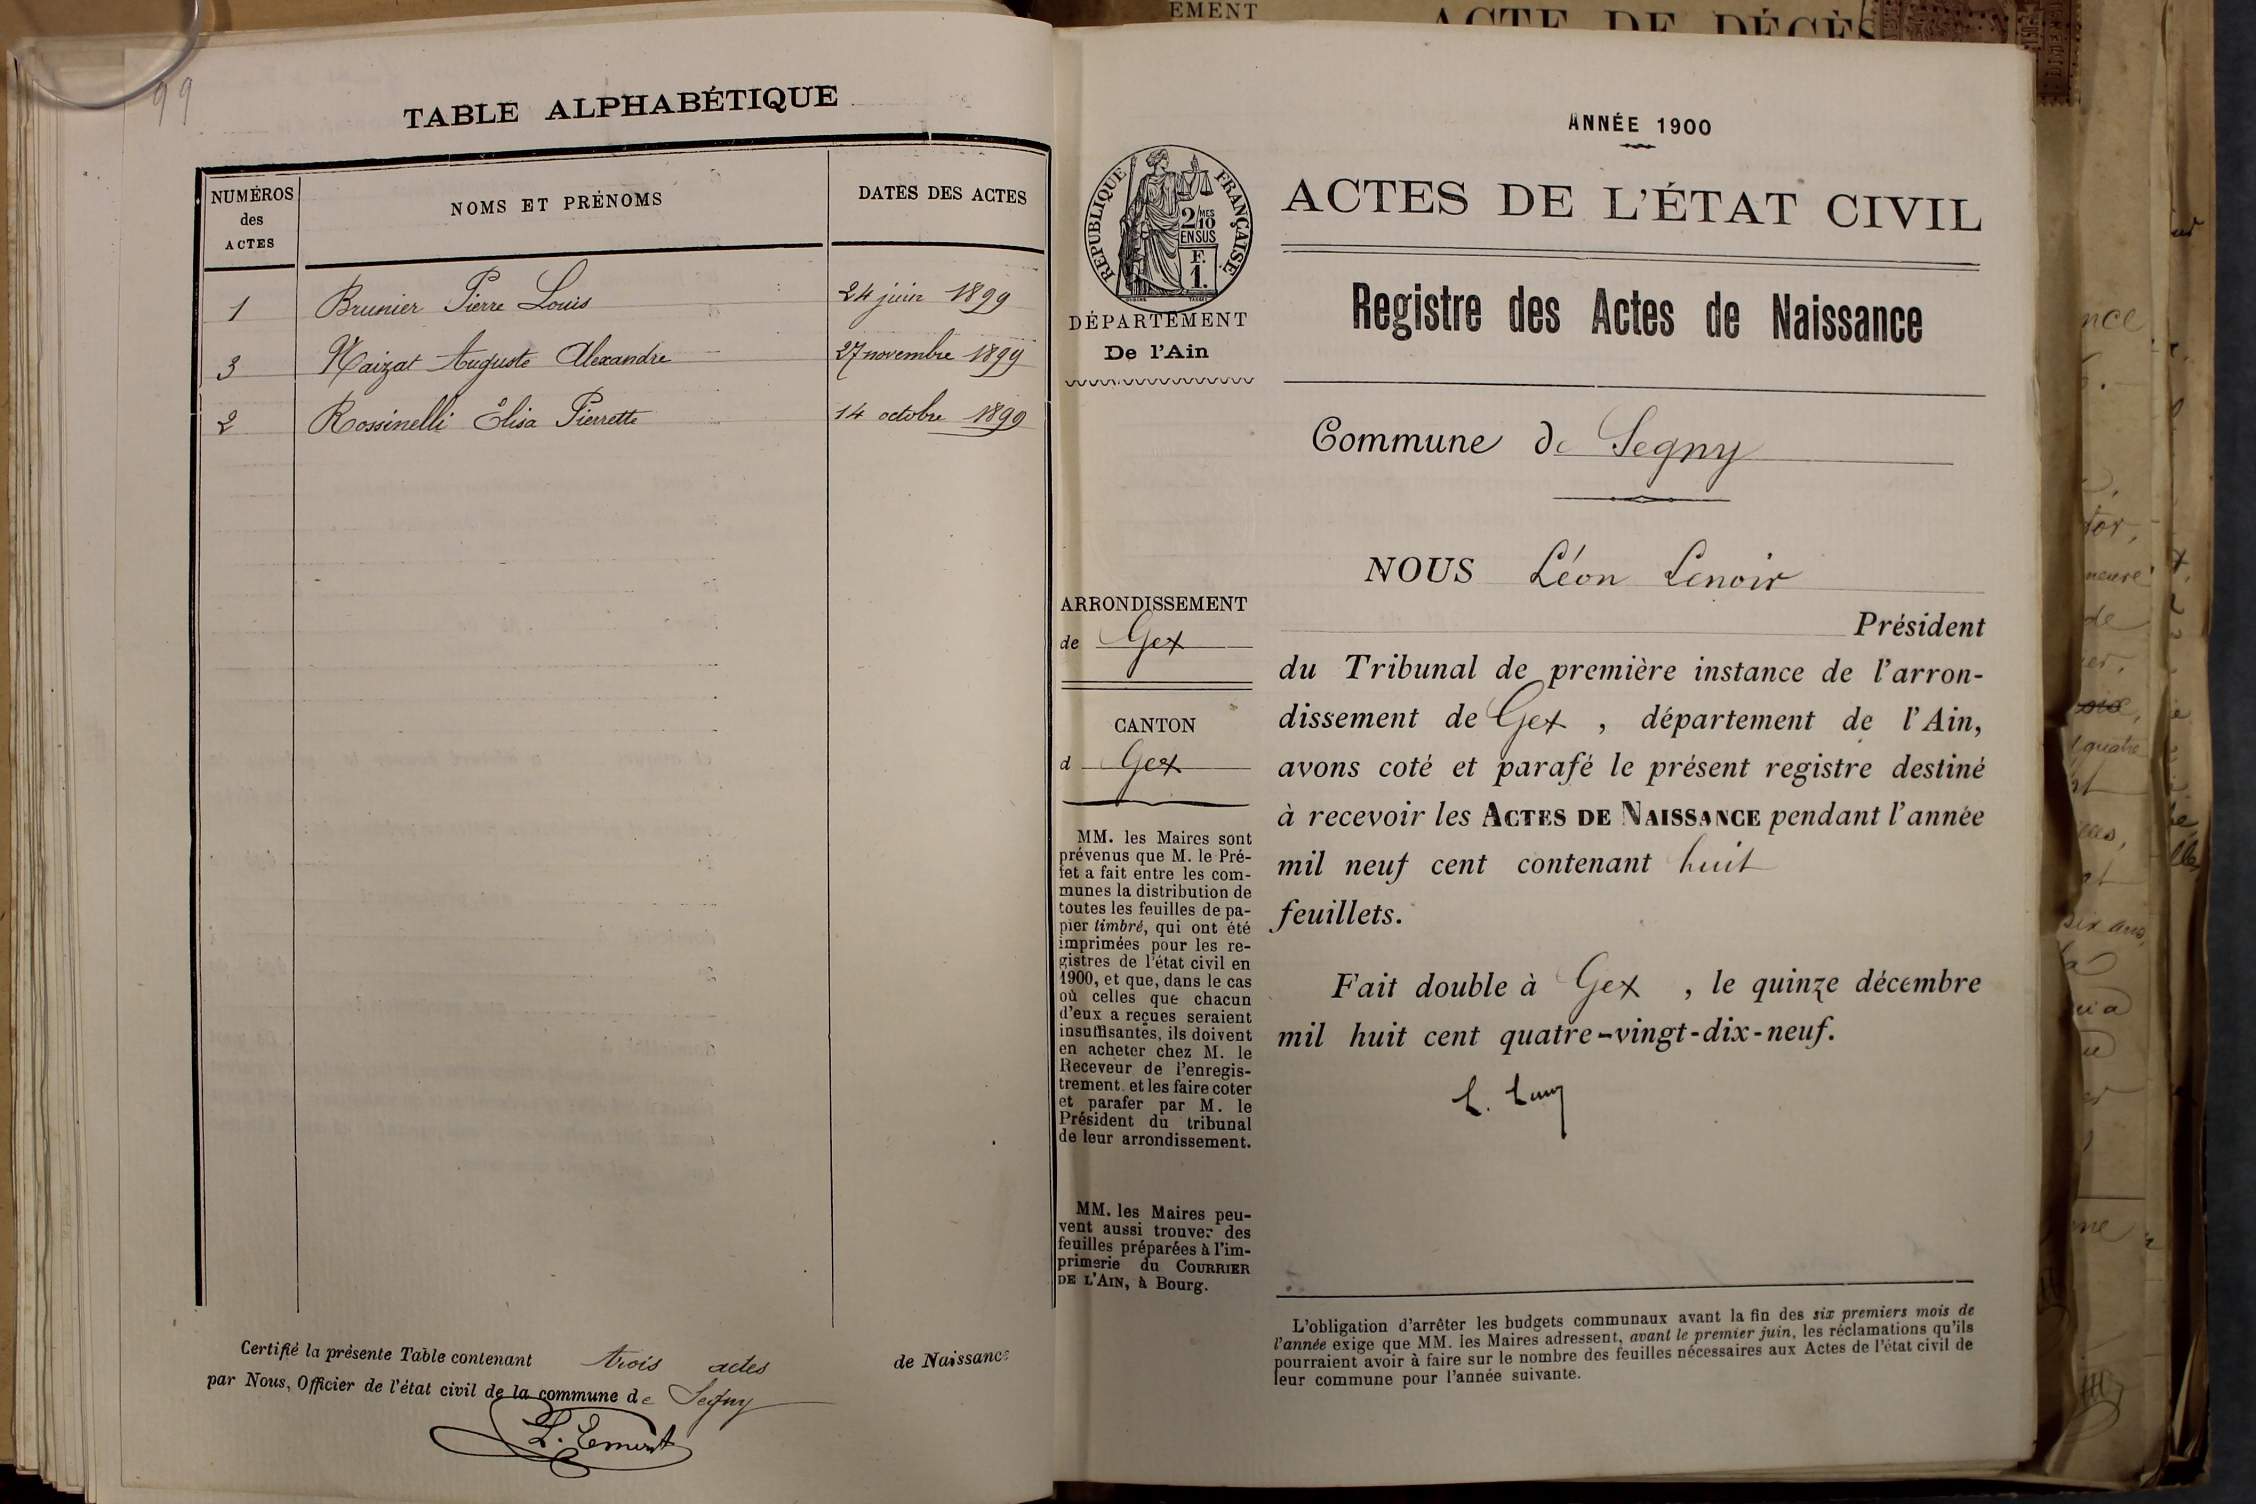 99
TABLE ALPHABÉTIQUE
NUMÉROS
des
ACTES
NOMS ET PRÉNOMS
DATES DES ACTES
1 Brunier Pierre Louis 24 juin 1899
3 Naizat Auguste Alexandre 27 novembre 1899
2 Rossinelli Élisa Pierrette 14 octobre 1899
Certifié la présente Table contenant trois actes de Naissance
par Nous, Officier de l'état civil de la commune de Segny
EMENT
ACTE DE DÉCÈS
RÉPUBLIQUE FRANÇAISE
2/10MES
EN SUS
F.
1.
DÉPARTEMENT
De l'Ain
ARRONDISSEMENT
de Gex
CANTON
d Gex
MM. les Maires sont
prévenus que M. le Pré-
fet a fait entre les com-
munes la distribution de
toutes les feuilles de pa-
pier timbré, qui ont été
imprimées pour les re-
gistres de l'état civil en
1900, et que, dans le cas
où celles que chacun
d'eux a reçues seraient
insuffisantes, ils doivent
en acheter chez M. le
Receveur de l'enregis-
trement et les faire coter
et parafer par M. le
Président du tribunal
de leur arrondissement.
MM. les Maires peu-
vent aussi trouver des
feuilles préparées à l'im-
primerie du COURRIER
DE L'AIN, à Bourg.
ANNÉE 1900
ACTES DE L'ÉTAT CIVIL
Registre des Actes de Naissance
Commune de Segny
NOUS Léon Lenoir
Président
du Tribunal de première instance de l'arron-
dissement de Gex, département de l'Ain,
avons coté et parafé le présent registre destiné
à recevoir les ACTES DE NAISSANCE pendant l'année
mil neuf cent contenant huit
feuillets.
Fait double à Gex, le quinze décembre
mil huit cent quatre-vingt-dix-neuf.
L'obligation d'arrêter les budgets communaux avant la fin des six premiers mois de
l'année exige que MM. les Maires adressent, avant le premier juin, les réclamations qu'ils
pourraient avoir à faire sur le nombre des feuilles nécessaires aux Actes de l'état civil de
leur commune pour l'année suivante.